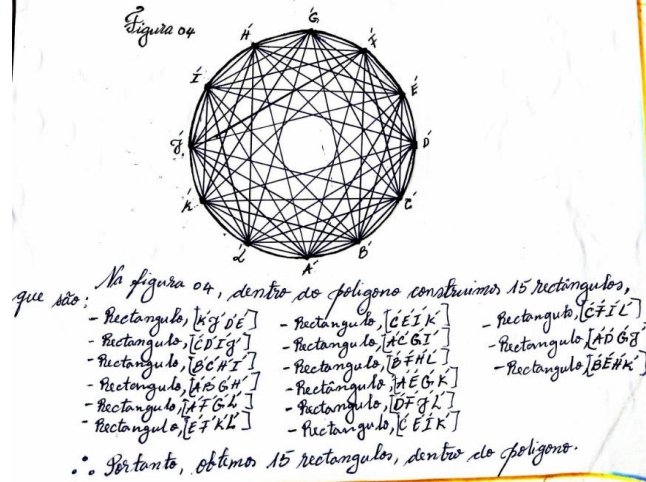 Figura 04
G´
H´
F´
I´
E´
J´
D´
K´
C´
L´
B´
A´
Na figura 04, dentro do poligono construimos 15 rectângulos,
que são:
- Rectangulo, [K´J´D´E´]
- Rectangulo, [C´D´I´J´]
- Rectangulo, [B´C´H´I´]
- Rectangulo, [A´B´G´H´]
- Rectangulo, [A´F´G´L´]
- Rectangulo, [E´F´K´L´]
- Rectangulo, [C´E´I´K´]
- Rectangulo, [A´C´G´I´]
- Rectangulo, [B´F´H´L´]
- Rectângulo, [A´E´G´K´]
- Rectangulo, [D´F´J´L´]
- Rectangulo, [C´E´I´K´]
- Rectangulo, [C´F´I´L´]
- Rectangulo, [A´D´G´J´]
- Rectangulo, [B´E´H´K´]
∴ Portanto, obtemos 15 rectangulos, dentro do poligono.